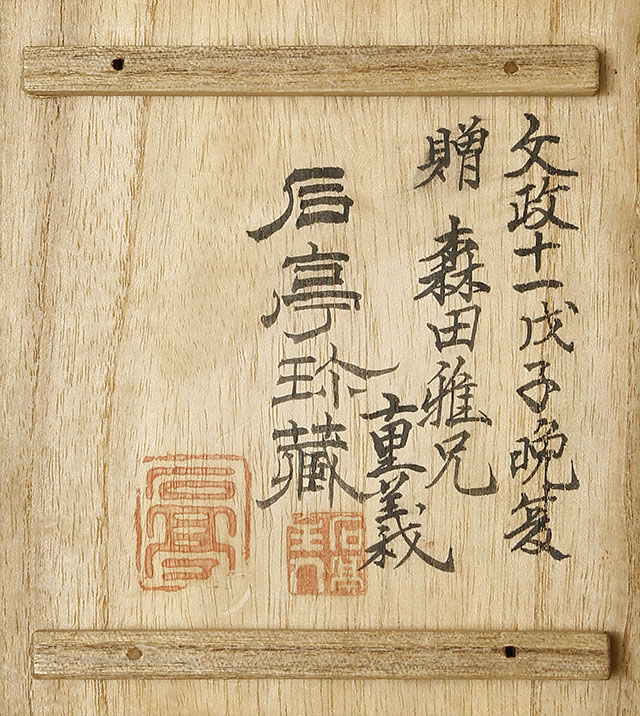 文政十一戊子晩夏
贈 森田雅兄
重義
后亭珍藏